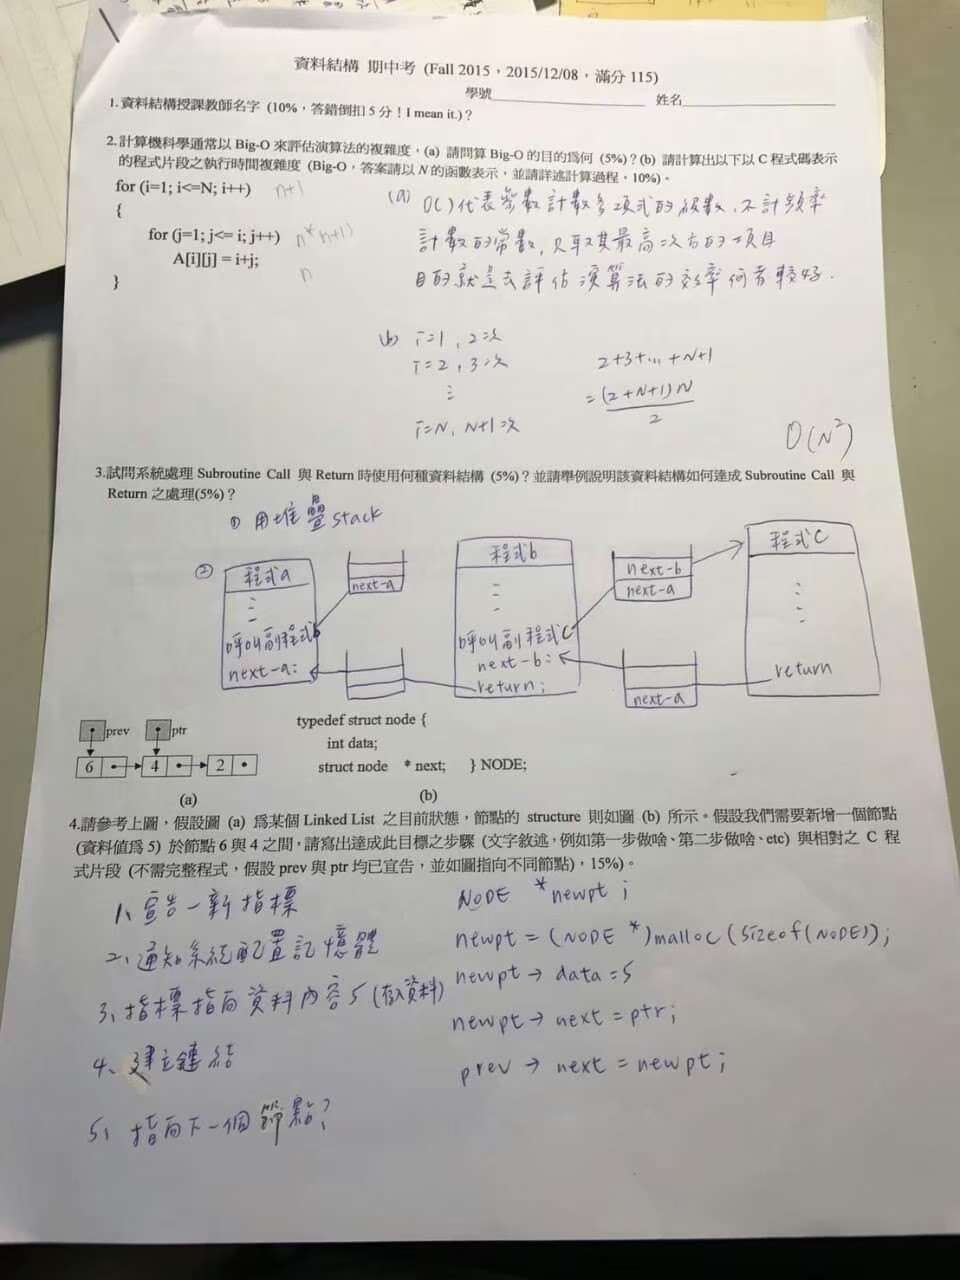 資料結構 期中考 (Fall 2015，2015/12/08，滿分 115)
學號 姓名
1.資料結構授課教師名字 (10%，答錯倒扣 5 分！I mean it.)？
2.計算機科學通常以 Big-O 來評估演算法的複雜度，(a) 請問算 Big-O 的目的為何 (5%)？(b) 請計算出以下以 C 程式碼表示
的程式片段之執行時間複雜度 (Big-O，答案請以 N 的函數表示，並請詳述計算過程，10%)。
for (i=1; i<=N; i++) n+1
{
for (j=1; j<= i; j++) n*(n+1)
A[i][j] = i+j; n
}
(a) O( )代表參數計數多項式的級數，不計頻率
計數的常數，只取其最高次方的項目
目的就是去評估演算法的效率何者較好.
(b) i=1, 2次
i=2, 3次
⋮
i=N, N+1次
2+3+...+N+1
= (2+N+1)N
2
O(N²)
3.試問系統處理 Subroutine Call 與 Return 時使用何種資料結構 (5%)？並請舉例說明該資料結構如何達成 Subroutine Call 與
Return 之處理(5%)？
① 用堆疊 stack
②
程式a
呼叫副程式b
next-a:
next-a
程式b
呼叫副程式C
next-b:
return;
next-b
next-a
next-a
程式C
return
prev ptr
6 4 2
(a)
typedef struct node {
int data;
struct node * next; } NODE;
(b)
4.請參考上圖，假設圖 (a) 為某個 Linked List 之目前狀態，節點的 structure 則如圖 (b) 所示。假設我們需要新增一個節點
(資料值為 5) 於節點 6 與 4 之間，請寫出達成此目標之步驟 (文字敘述，例如第一步做啥、第二步做啥、etc) 與相對之 C 程
式片段 (不需完整程式，假設 prev 與 ptr 均已宣告，並如圖指向不同節點)，15%)。
1、宣告一新指標
2、通知系統配置記憶體
3、指標指向資料內容5(存入資料)
4、建立鏈結
5、指向下一個節點？
NODE *newpt;
newpt = (NODE *)malloc(sizeof(NODE));
newpt → data = 5
newpt → next = ptr;
prev → next = newpt;